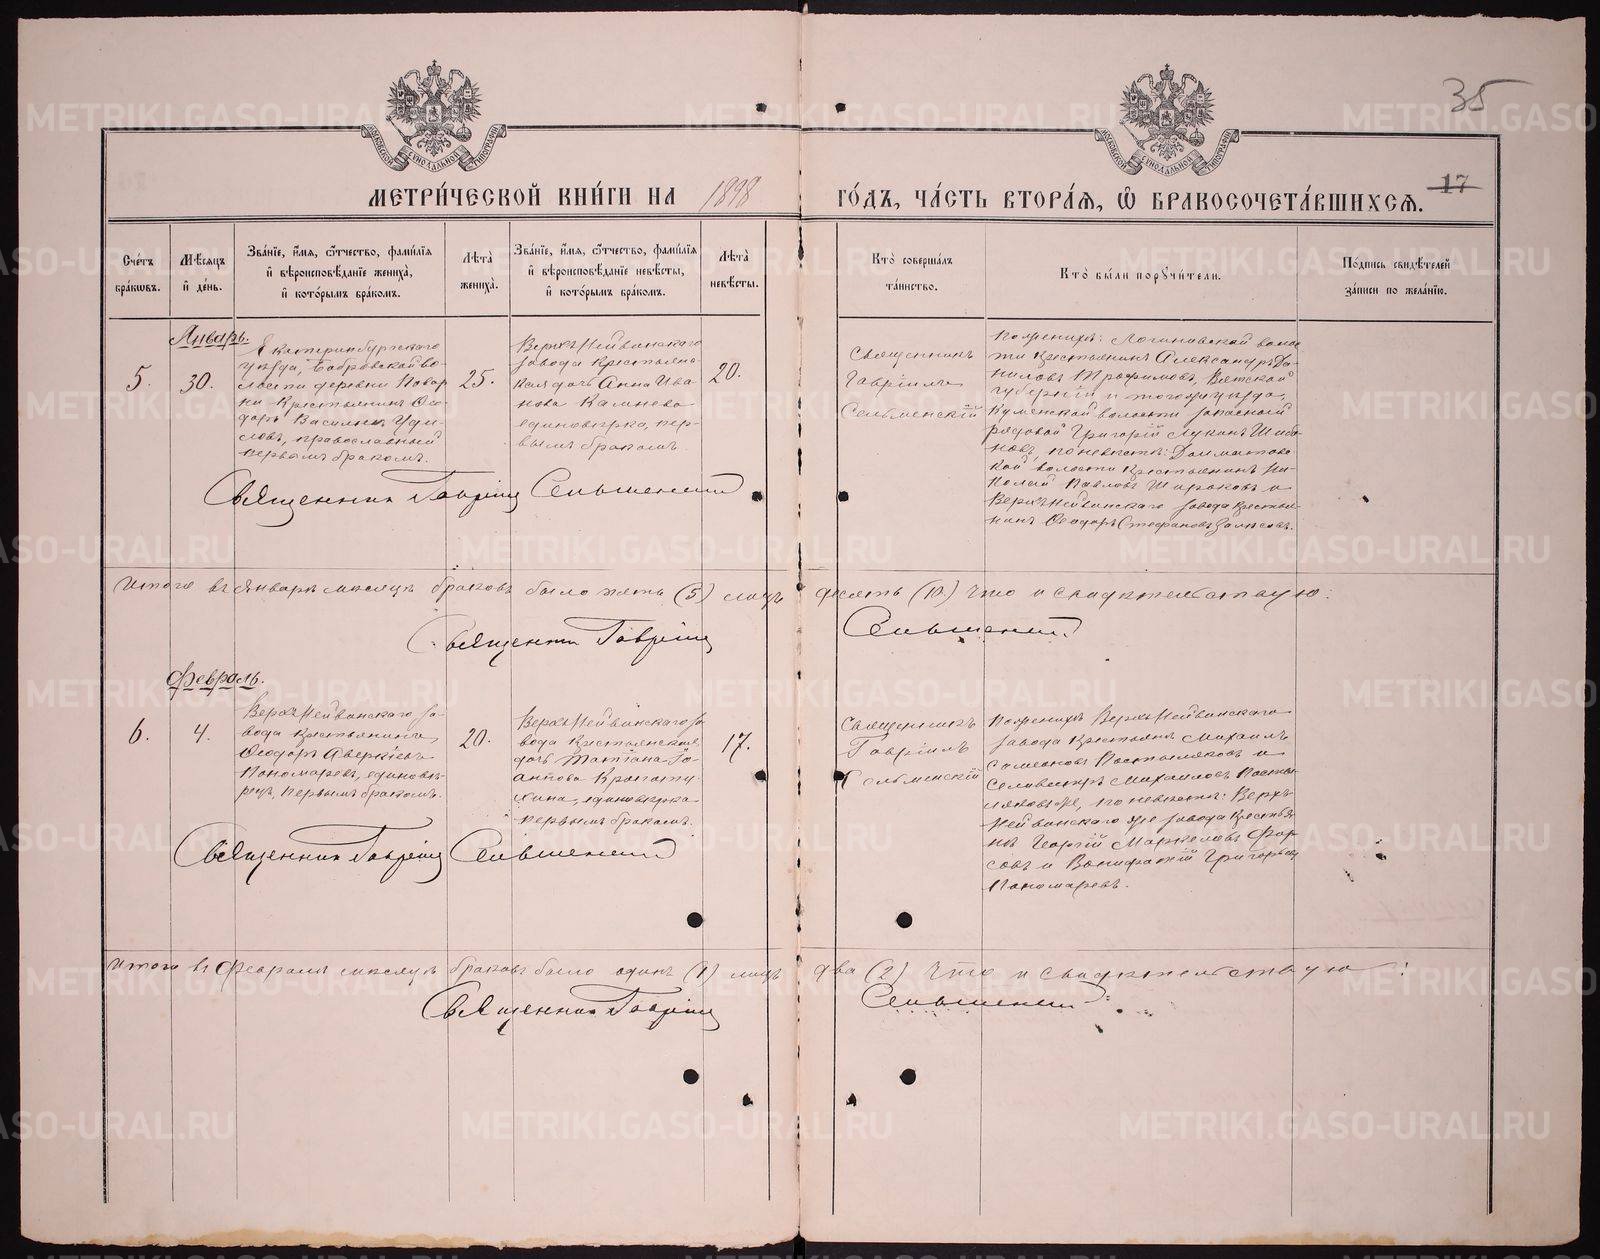 35
МОСКОВСКОЙ СѴНОДАЛЬНОЙ ТИПОГРАФІИ
МОСКОВСКОЙ СѴНОДАЛЬНОЙ ТИПОГРАФІИ
МЕТРИ́ЧЕСКОЙ КНИ́ГИ НА 1898
ГО́ДЪ, ЧА́СТЬ ВТОРА́Я, Ѽ БРАКОСОЧЕТА́ВШИХСЯ. 17
Сче́тъ
бра́кѡвъ.
Мѣ́сяцъ
и҆ де́нь.
Зва́нїе, и҆́мя, ѻ҆́тчество, фами́лїя
и҆ вѣроисповѣ́данїе жениха̀,
и҆ кото́рымъ бра́комъ.
Лѣ́та
жениха̀.
Зва́нїе, и҆́мя, ѻ҆́тчество, фами́лїя
и҆ вѣроисповѣ́данїе невѣ́сты,
и҆ кото́рымъ бра́комъ.
Лѣ́та
невѣ́сты.
Кто̀ соверша́лъ
та́инство.
Кто̀ бы́ли порꙋчи́тели.
По́дпись свидѣ́телей
за́писи по жела́нїю.
Январь.
5.
30.
Екатеринбургскаго
уѣзда, Бобровской во-
лости деревни
крестьянинъ Ѳео-
доръ Васильевъ
православный
первымъ бракомъ.
25.
Верхъ Нейвинскаго
завода крестьянс-
кая дочь Анна Ива
нова Камнева
единовѣрка, пер-
вымъ бракомъ.
20.
Священникъ
Гавріилъ
Сельменскій
По женихѣ: Логиновской волос
ти крестьянинъ Александръ Да-
ниловъ Трофимовъ, Вятской
губерніи и того же уѣзда,
Куменской волости запасный
рядовой Григорій Лукинъ Шиба
новъ, по невѣстѣ: Далматовс
кой волости крестьянинъ Ни-
колай Павловъ Широковъ и
Верхъ Нейвинскаго завода крестья-
нинъ Ѳеодоръ Стефановъ
Священникъ Гавріилъ Сельменскій
Итого въ Январѣ мѣсяцѣ браковъ было пять (5) лицъ десять (10) что и свидѣтельствую:
Священникъ Гавріилъ Сельменскій
Февраль.
6.
4.
Верхъ Нейвинскаго за-
вода крестьянинъ
Ѳеодоръ Аверкіевъ
Пономаревъ, единовѣ-
рецъ, первымъ бракомъ.
20.
Верхъ Нейвинскаго за
вода крестьянская
дочь Татіана
единовѣрка
первымъ бракомъ.
17.
Священникъ
Гавріилъ
Сельменскій
По женихѣ Верхъ Нейвинскаго
завода крестьяне Михаилъ
Симеоновъ Постыляковъ и
Селивестръ Михаиловъ Посты-
ляковъ же, по невѣстѣ: Верхъ
Нейвинскаго же завода крестья
не Георгій Маркеловъ Фир-
совъ и Вонифатій Григорьевъ
Пономаревъ.
Священникъ Гавріилъ Сельменскій
Итого въ Февралѣ мѣсяцѣ браковъ было одинъ (1) лицъ два (2) что и свидѣтельствую:
Священникъ Гавріилъ Сельменскій
METRIKI.GASO-URAL.RU